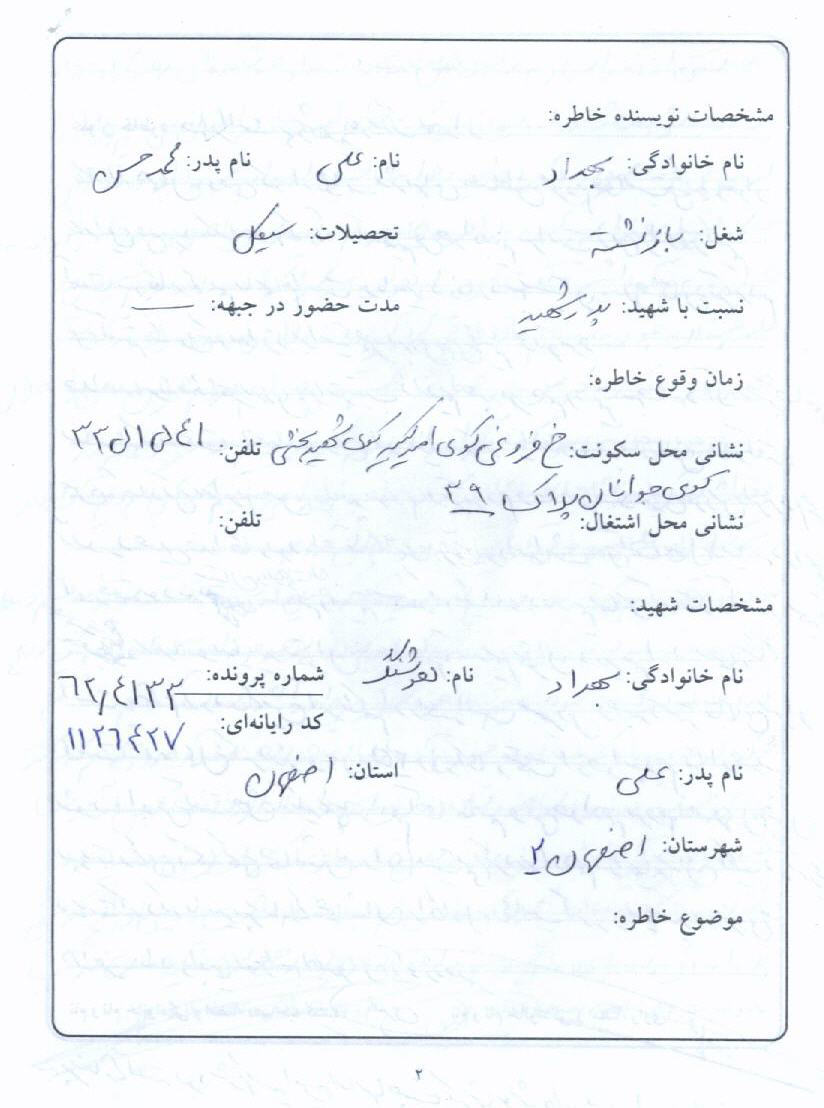 مشخصات نویسنده خاطره:
نام خانوادگی: بهداد نام: علی نام پدر: محمد حسن
شغل: بازنشسته تحصیلات: سیکل
نسبت با شهید: پدر شهید مدت حضور در جبهه: —
زمان وقوع خاطره:
نشانی محل سکونت: خ فروغی کوی امیرکبیر کوی شهید تلفن:
کوی جوانان پلاک ۳۹
نشانی محل اشتغال: تلفن:
مشخصات شهید:
نام خانوادگی: بهداد نام: شماره پرونده: ۶۲/۴۱۳۳
کد رایانه‌ای: ۱۱۲۶۴۲۷
نام پدر: علی استان: اصفهان
شهرستان: اصفهان ۲
موضوع خاطره:
۲